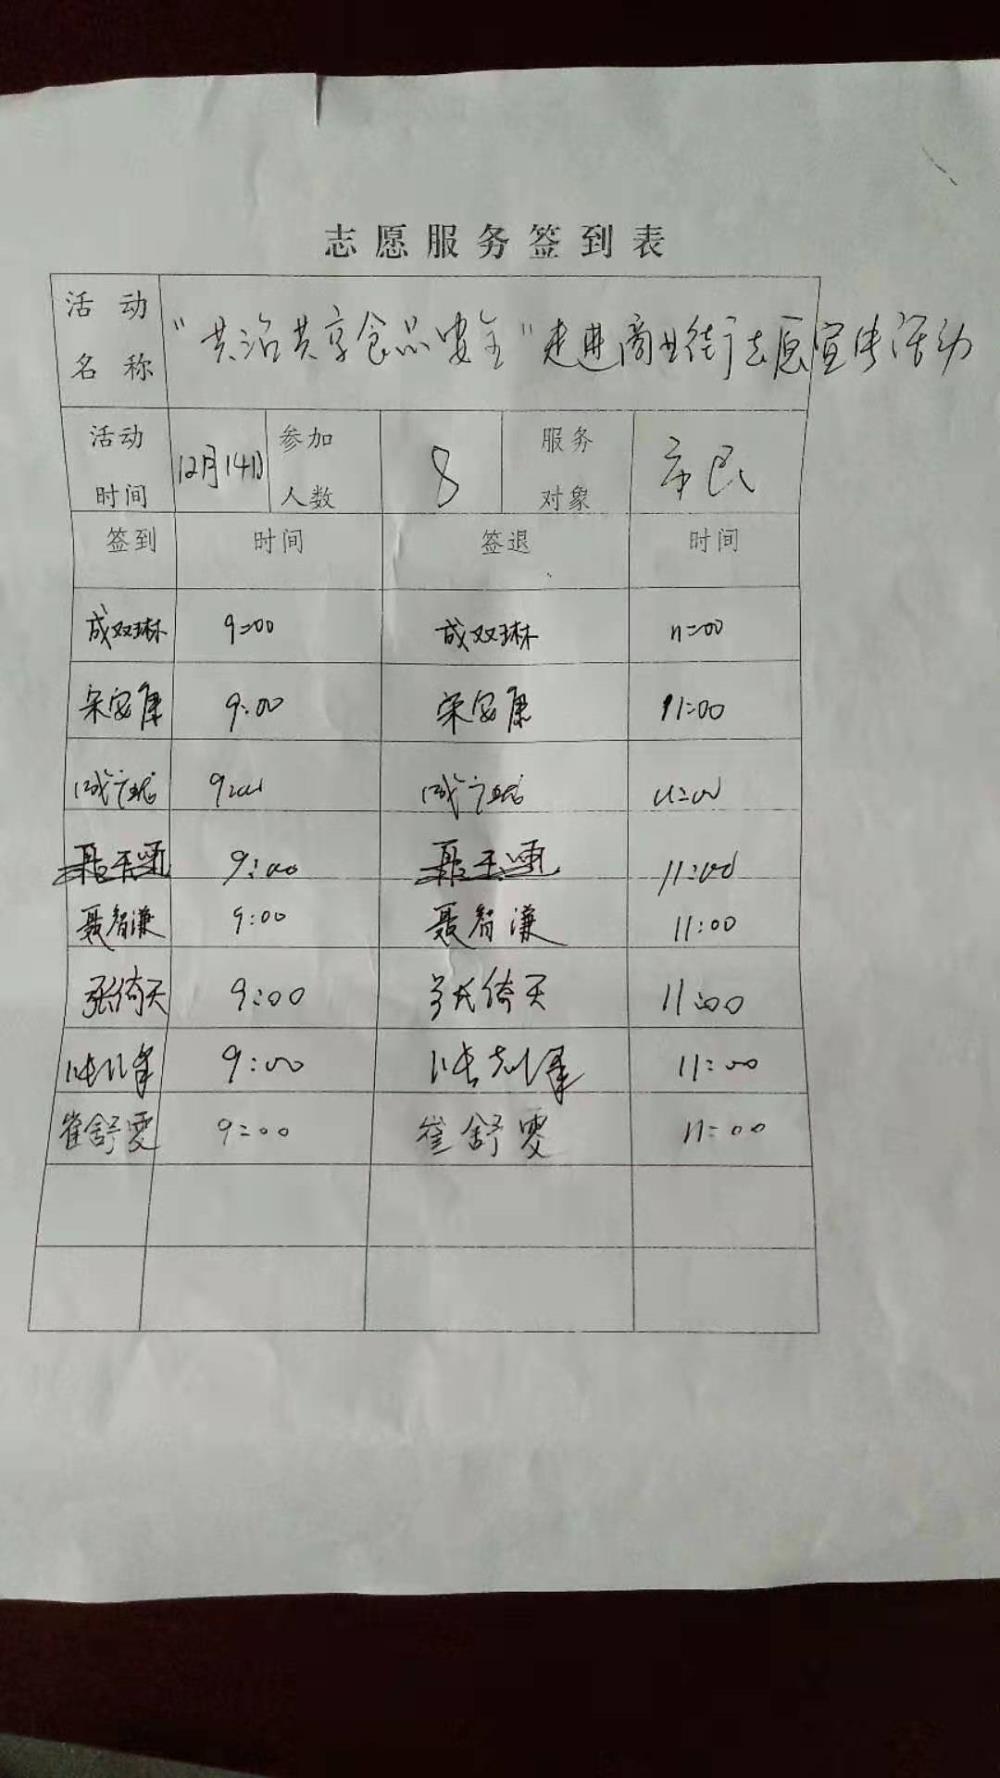 志愿服务签到表
活动名称 "共治共享食品安全"走进商业街志愿宣传活动
活动时间 12月14日 参加人数 8 服务对象 市民
签到 时间 签退 时间
成双琳 9:00 成双琳 11:00
宋安康 9:00 宋安康 11:00
9:00 11:00
9:00 11:00
聂智谦 9:00 聂智谦 11:00
张倚天 9:00 张倚天 11:00
9:00 11:00
崔舒雯 9:00 崔舒雯 11:00